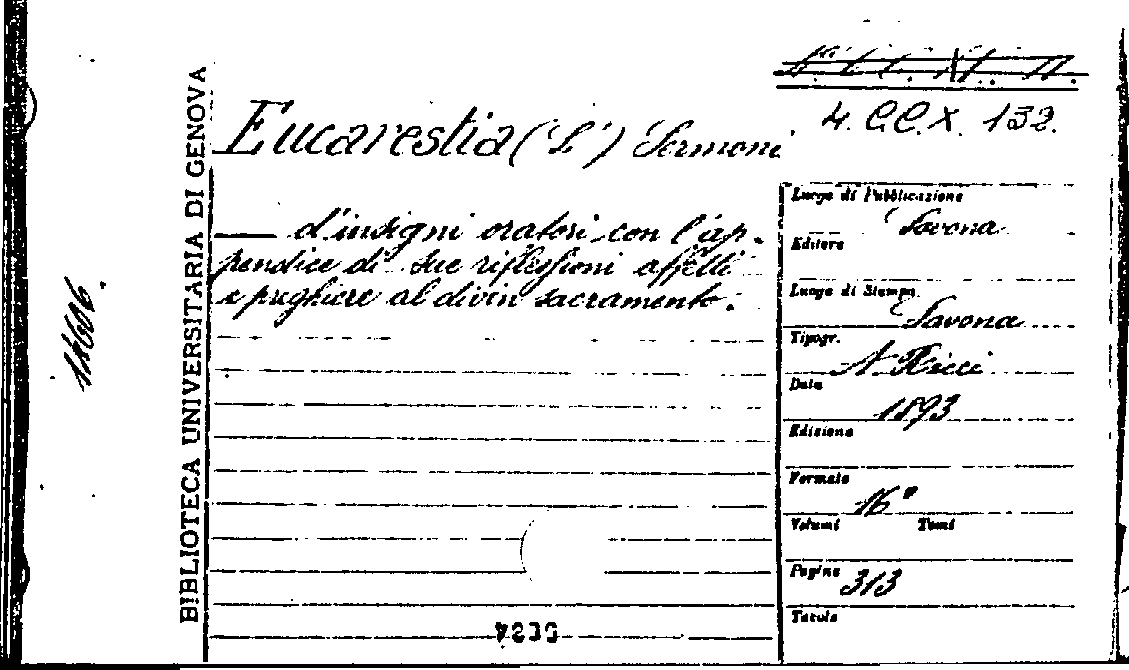 4. C.C.X. 132.
Eucarestia (L') Sermoni
d'insigni oratori con l'ap-
pendice di sue riflessioni affetti
e preghiere al divin sacramento.
BIBLIOTECA UNIVERSITARIA DI GENOVA
Luogo di Pubblicazione
Savona
Editore
Luogo di Stampa
Savona
Tipogr.
A. Ricci
Data
1893
Edizione
Formato
16°
Volumi Tomi
Pagine
313
Tavole